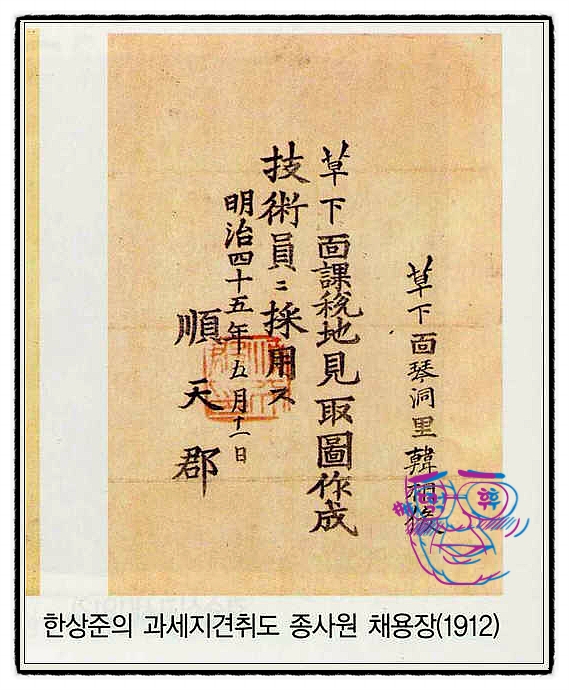 草下面琴洞里 韓相
草下面課税地見取圖作成
技術員ニ採用ス
明治四十五年五月十一日
順天郡
韓
한상준의 과세지견취도 종사원 채용장(1912)